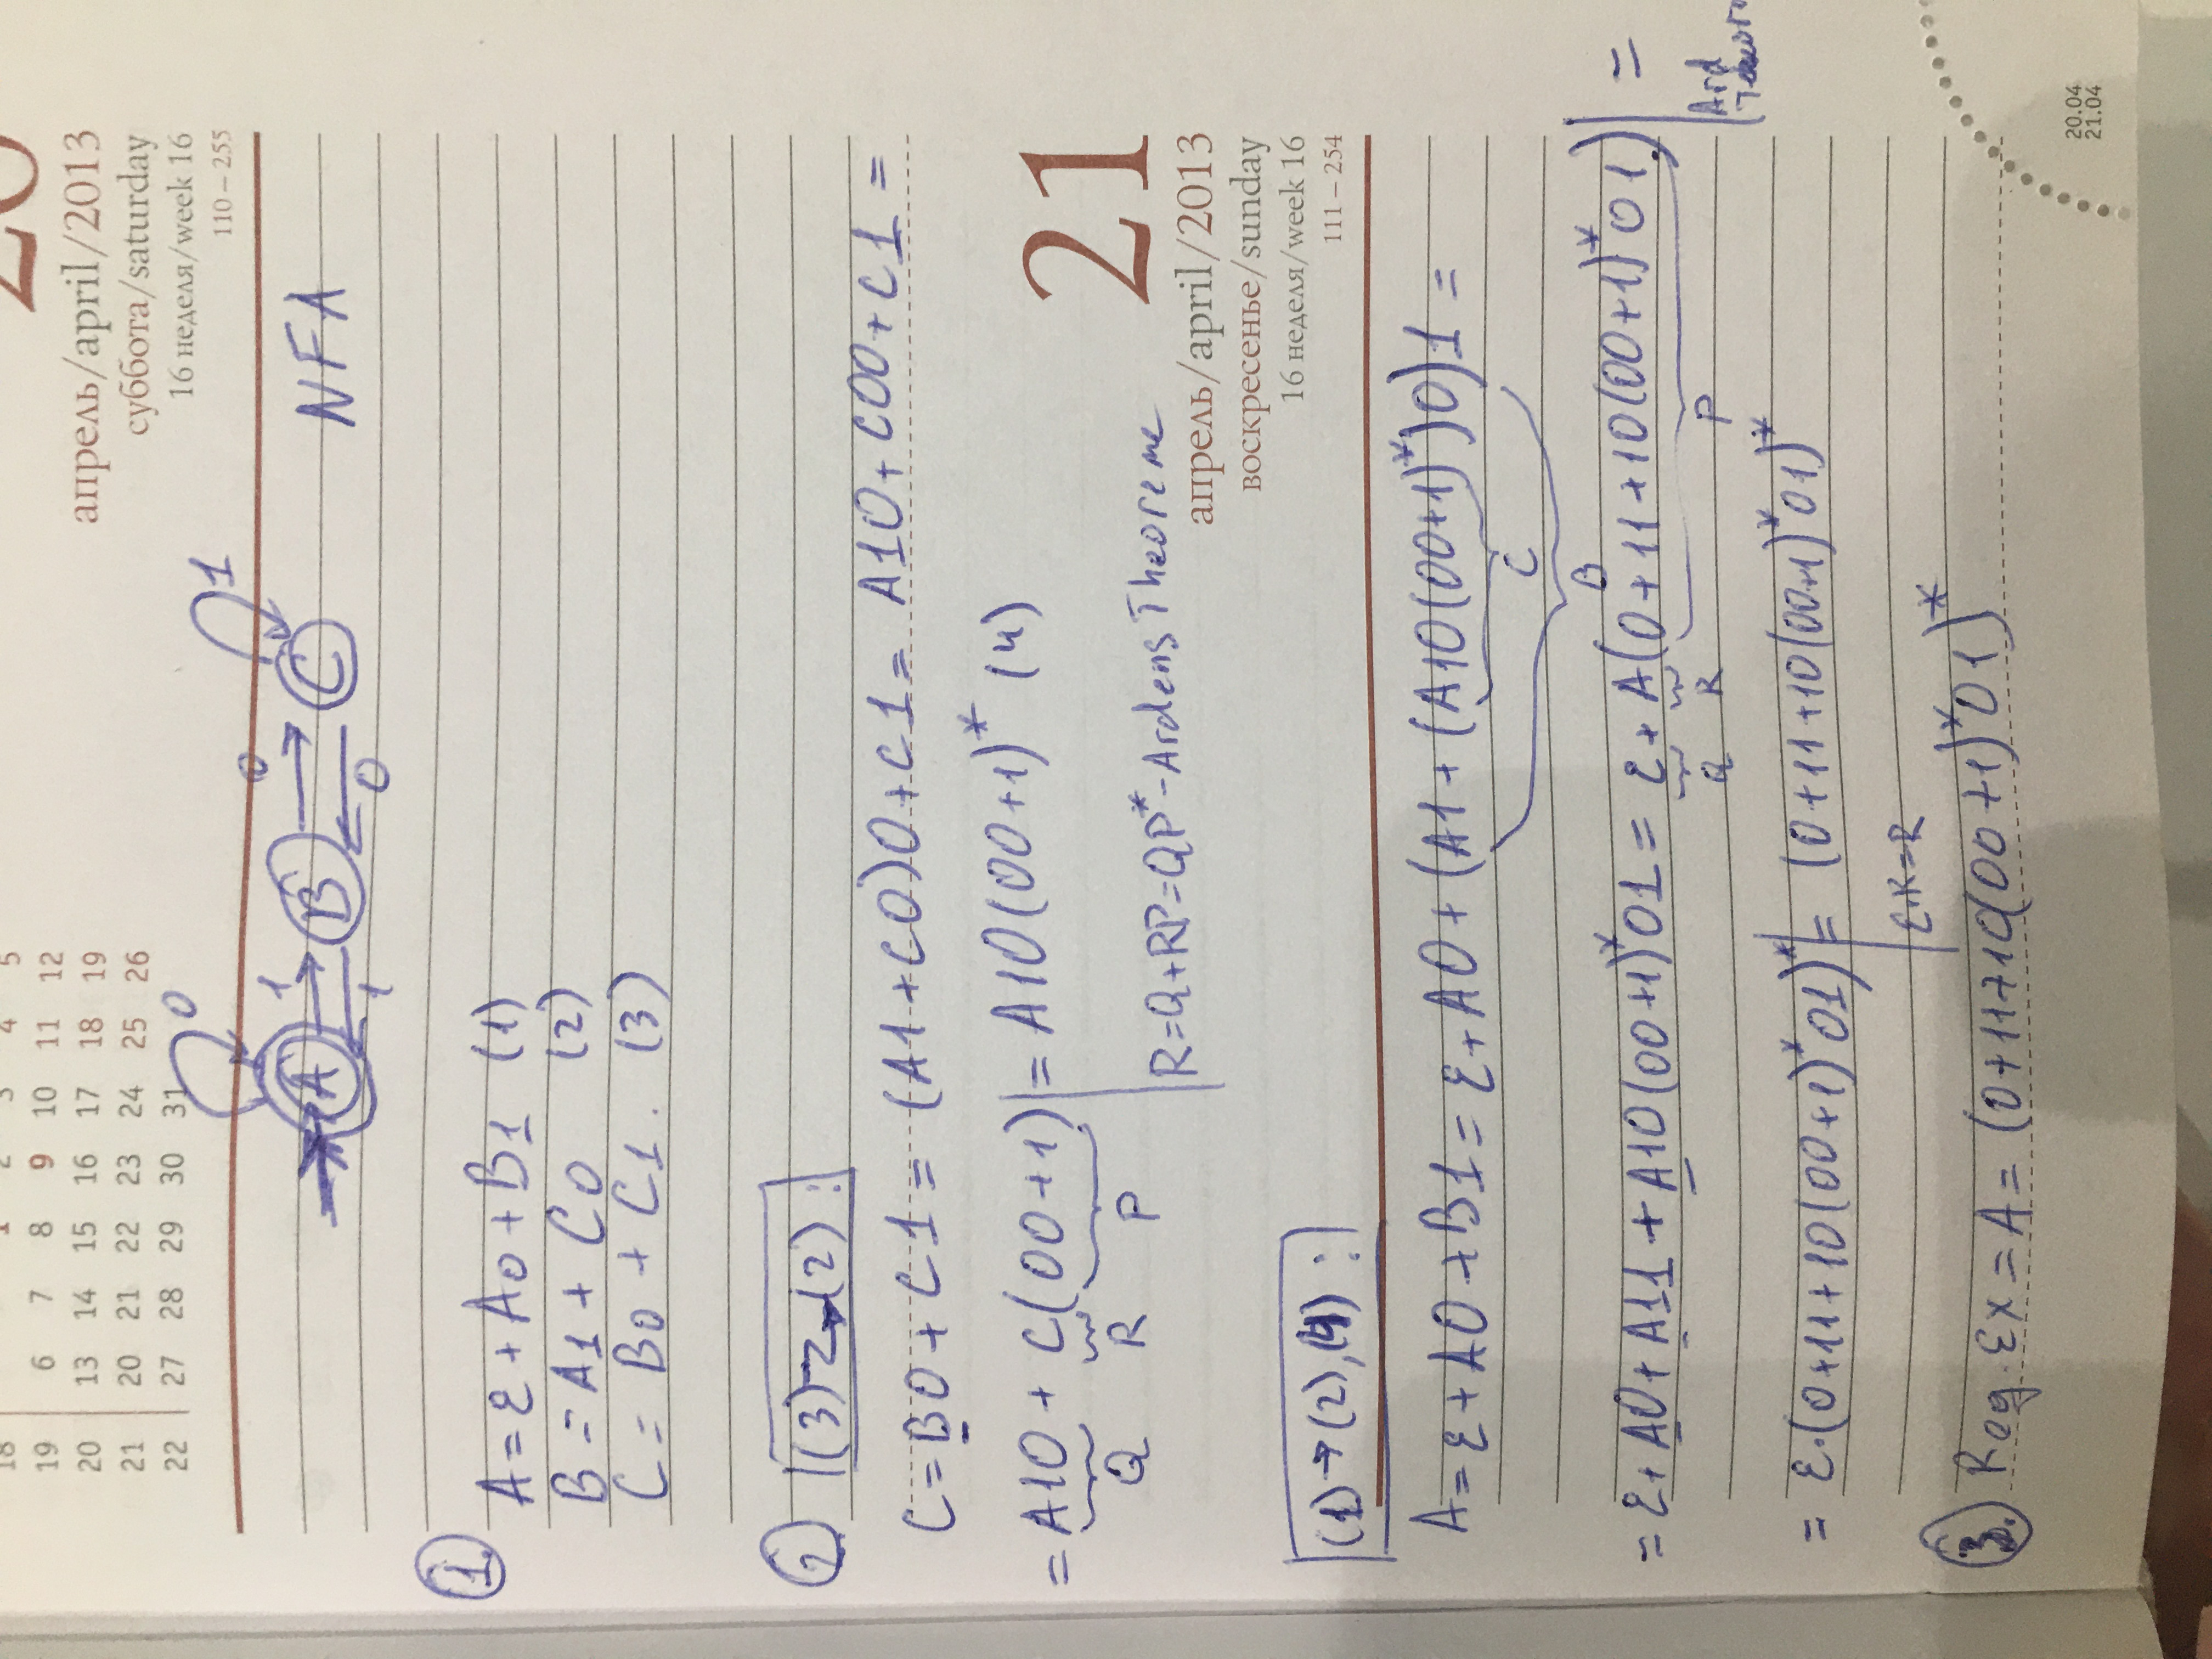 18 1 2 3 4 5
19 6 7 8 9 10 11 12
20 13 14 15 16 17 18 19
21 20 21 22 23 24 25 26
22 27 28 29 30 31
20
апрель/april/2013
суббота/saturday
16 неделя/week 16
110 – 255
0
1 0 1
A B C NFA
1 0
1.
A = ε + A0 + B1 (1)
B = A1 + C0 (2)
C = B0 + C1. (3)
2. (3) → (2):
C = B0 + C1 = (A1+C0)0 + C1 = A10 + C00 + C1 =
= A10 + C(00+1) | = A10(00+1)* (4)
Q R P
R=Q+RP=QP*-Ardens Theoreme
21
апрель/april/2013
воскресенье/sunday
16 неделя/week 16
111 – 254
(1) → (2), (4) :
A = ε + A0 + B1 = ε + A0 + (A1 + (A10(00+1)*)0)1 =
C
B
= ε + A0 + A11 + A10(00+1)*01 = ε + A(0+11+10(00+1)*01) | =
Q R P
Ard
= ε·(0+11+10(00+1)*01)* | = (0+11+10(00+1)*01)*
ε·R=R
3. Reg. Ex = A = (0+11+10(00+1)*01)*
20.04
21.04